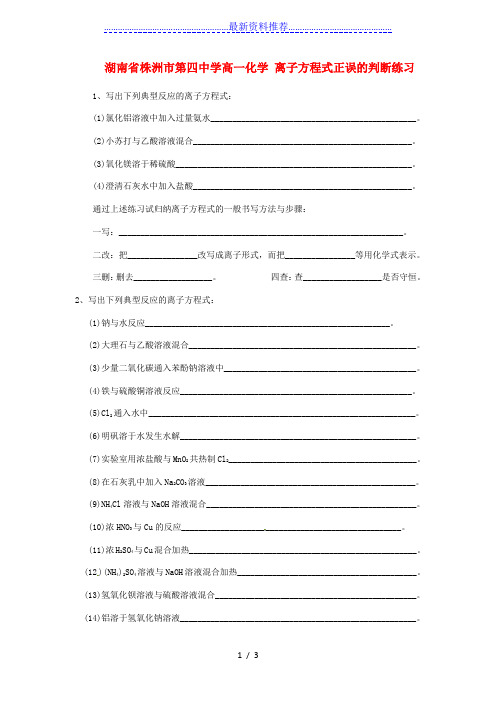 ……………………………………………………最新资料推荐…………………………………………
湖南省株洲市第四中学高一化学 离子方程式正误的判断练习
1、写出下列典型反应的离子方程式：
(1)氯化铝溶液中加入过量氨水________________________________________________。
(2)小苏打与乙酸溶液混合____________________________________________________。
(3)氧化镁溶于稀硫酸________________________________________________________。
(4)澄清石灰水中加入盐酸____________________________________________________。
通过上述练习试归纳离子方程式的一般书写方法与步骤：
一写：__________________________________________________________________。
二改：把________________改写成离子形式，而把________________等用化学式表示。
三删：删去__________________。 四查：查__________________是否守恒。
2、写出下列典型反应的离子方程式：
(1)钠与水反应__________________________________________________________。
(2)大理石与乙酸溶液混合______________________________________________________。
(3)少量二氧化碳通入苯酚钠溶液中______________________________________________。
(4)铁与硫酸铜溶液反应______________________________________________________。
(5)Cl₂通入水中______________________________________________________________。
(6)明矾溶于水发生水解________________________________________________________。
(7)实验室用浓盐酸与MnO₂共热制Cl₂____________________________________________。
(8)在石灰乳中加入Na₂CO₃溶液__________________________________________________。
(9)NH₄Cl溶液与NaOH溶液混合__________________________________________________。
(10)浓HNO₃与Cu的反应____________________________________________________。
(11)浓H₂SO₄与Cu混合加热______________________________________________________。
(12)(NH₄)₂SO₄溶液与NaOH溶液混合加热__________________________________________。
(13)氢氧化钡溶液与硫酸溶液混合________________________________________________。
(14)铝溶于氢氧化钠溶液________________________________________________________。
1 / 3